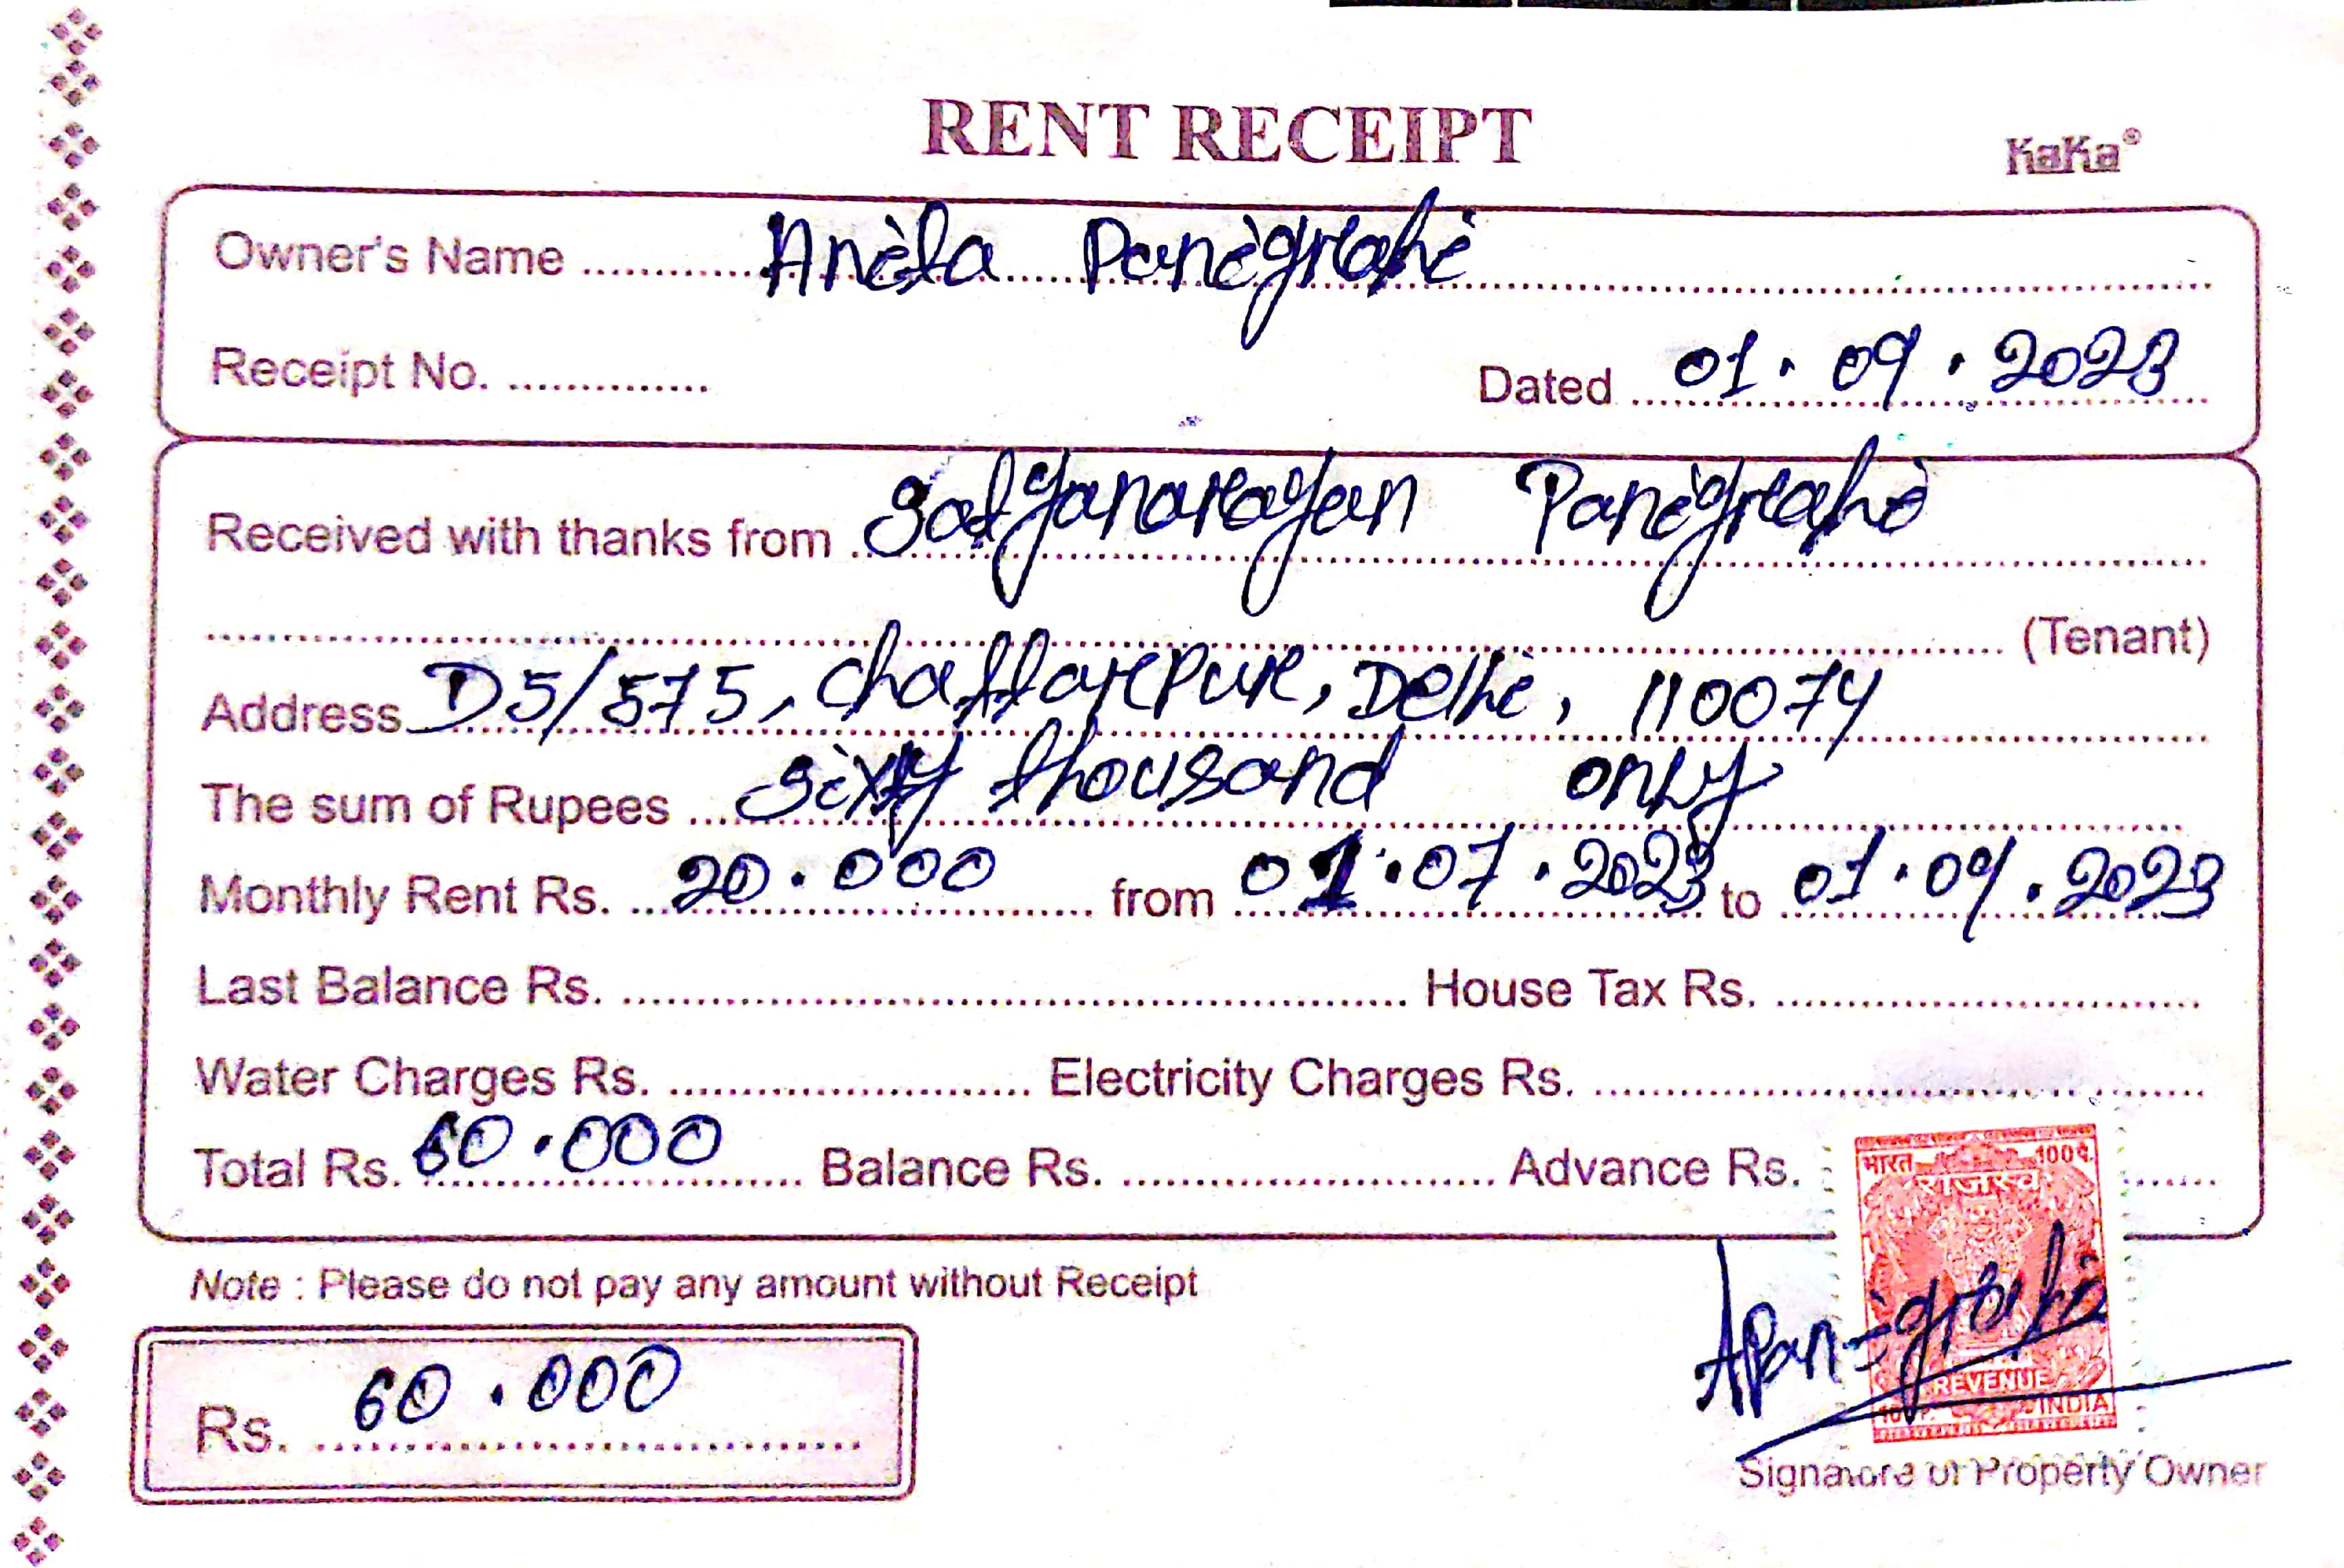 RENT RECEIPT
KaKa®
Owner's Name Anita Panigrahi
Receipt No. Dated 01.09.2023
Received with thanks from Satyanarayan Panigrahi
(Tenant)
Address D5/575, Chattarpur, Delhi, 110074
The sum of Rupees Sixty thousand only
Monthly Rent Rs. 20.000 from 01.07.2023 to 01.09.2023
Last Balance Rs. House Tax Rs.
Water Charges Rs. Electricity Charges Rs.
Total Rs. 60.000 Balance Rs. Advance Rs.
भारत 100 पै.
राजस्व
Note : Please do not pay any amount without Receipt
Rs. 60.000
APanigrahi
REVENUE
INDIA
Signature of Property Owner